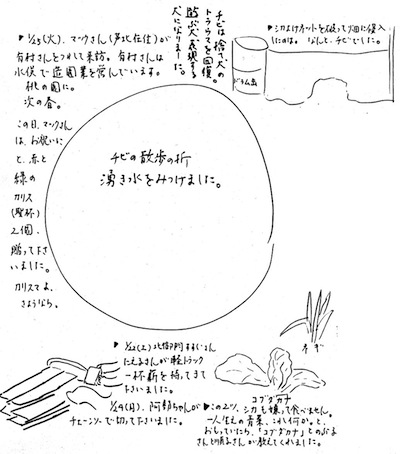 ▶1/25(火)、マックさん(芦北在住)が
有村さんとつれて来訪。有村さんは
水俣で造園業を営んでいます。
桃の園に。
次の春。
この日、マックさん
は、お祝いに
と、赤と
緑の
カリス
(聖杯)
2個、
贈って下さ
いました。
カリスてよ、
さようなら。
チビは捨て犬の
トラウマを回復。
遊ぶ犬、表現する
犬になりました。
▶シカよけネットを破って畑に侵入
したのは。なんと、チビでした。
ドラム缶
チビの散歩の折
湧き水をみつけました。
▶1/22(土)北御門すすぐさん
たえ子さんが軽トラック
一杯薪を持ってきて
下さいました。
1/24(月)、阿部ちゃんが
チェーンソーで切って下さいました。
ネギ
コブタカナ
▶この2ツ、シカも嫌って食べません。
一人生えの青菜、これ何か。と、
おもっていたら、「コブタカナ」とのぶ子
さんと順子さんが教えてくれました。